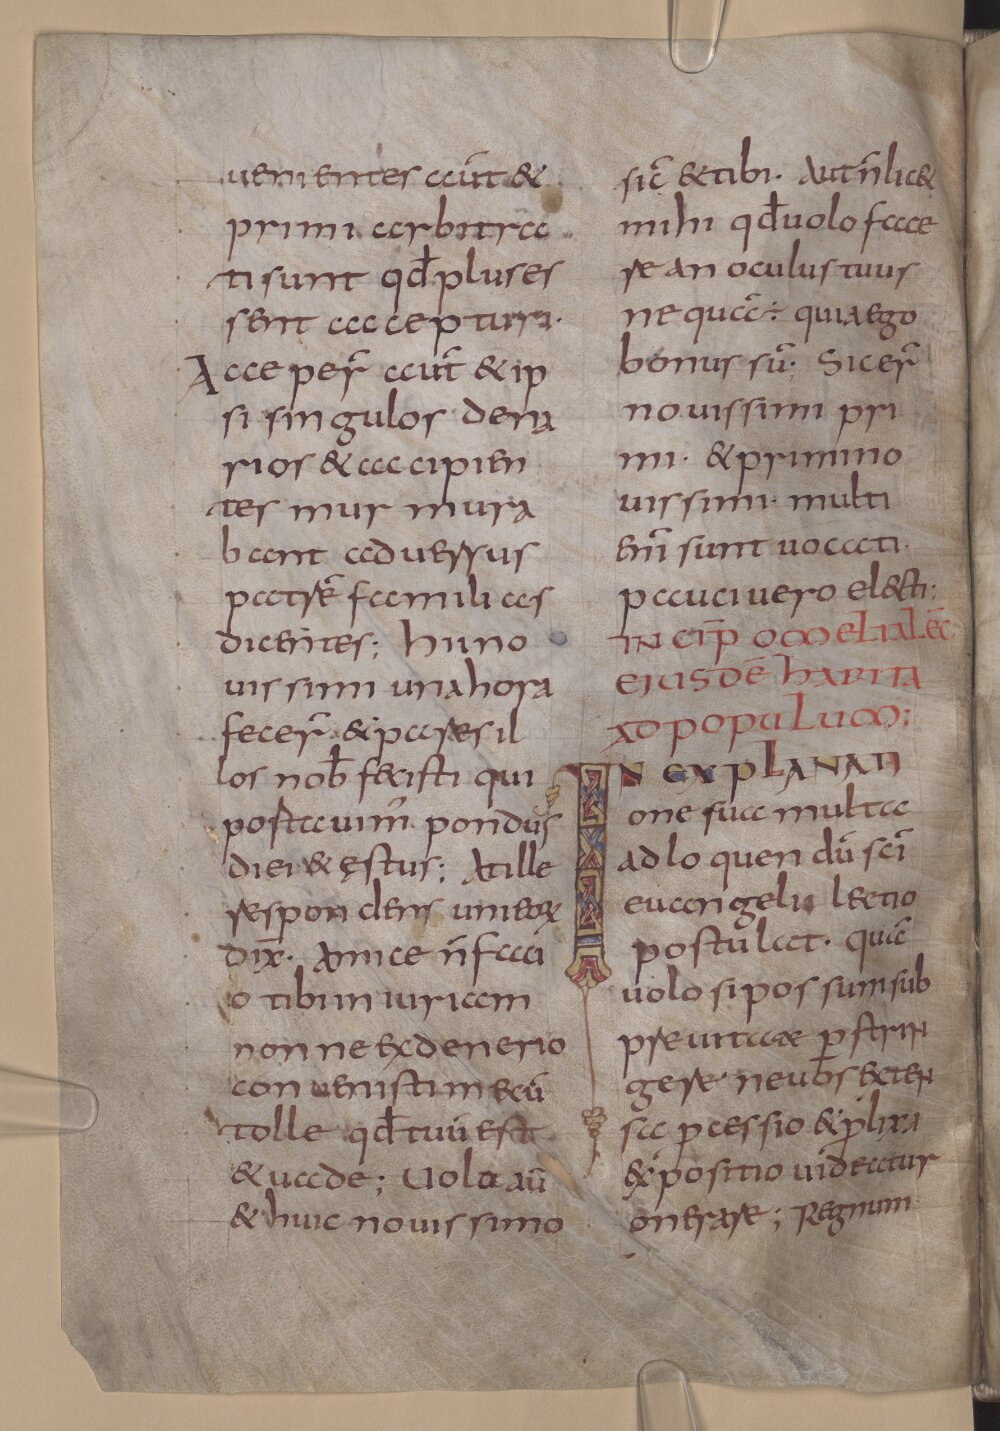 uenientes aūt &
primi arbitra
ti sunt qđ plus es
sent accepturi.
Acceper̄ aūt & ip
si singulos dena
rios & accipien
tes murmura
bant aduersus
patrē familias
dicentes; hi no
uissimi una hora
fecer̄ & pares il
los nob̄ fecisti qui
portauim̄ pondus
diei & ęstus; At ille
respondens uni eor̄
dix̄. Amice n̄ faci
o tibi iniuriam
nonne ex denerio
conuenisti mecū
tolle qđ tuū est
& uade; Uolo aū
& huic nouissimo
sic̄ & tibi. Aut n̄ lic&
mihi qđ uolo face
re an oculus tuus
nequā ÷ quia ego
bonus sū. Sic er̄
nouissimi pri
mi. & primi no
uissimi. multi
enī sunt uocati.
pauci uero electi;
INCIP̄ OMELIA LEC̄
EIUSDĒ HABITA
AD POPULUM;
IN EXPLANATI
one sua multa
ad loquendū sc̄i
euangelii lectio
postulat. quā
uolo si possum sub
p̄re uitate p̄strin
gere. ne uob̄s & exten
sa p̄cessio & p̄lixa
expositio uideatur
onerare; Regnum